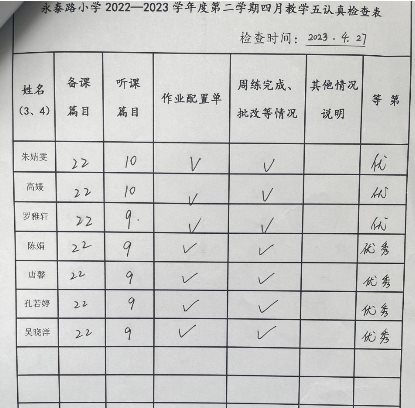 永泰路小学2022—2023学年度第二学期四月教学五认真检查表
检查时间：2023.4.27
姓名（3、4） 备课篇目 听课篇目 作业配置单 周练完成、批改等情况 其他情况说明 等第
朱婧雯 22 10 ✓ ✓ 优
高媛 22 10 ✓ ✓ 优
罗雅轩 22 9. ✓ ✓ 优
陈娟 22 9 ✓ ✓ 优秀
唐馨 22 9 ✓ ✓ 优秀
孔若婷 22 9 ✓ ✓ 优秀
吴晓洋 22 9 ✓ ✓ 优秀